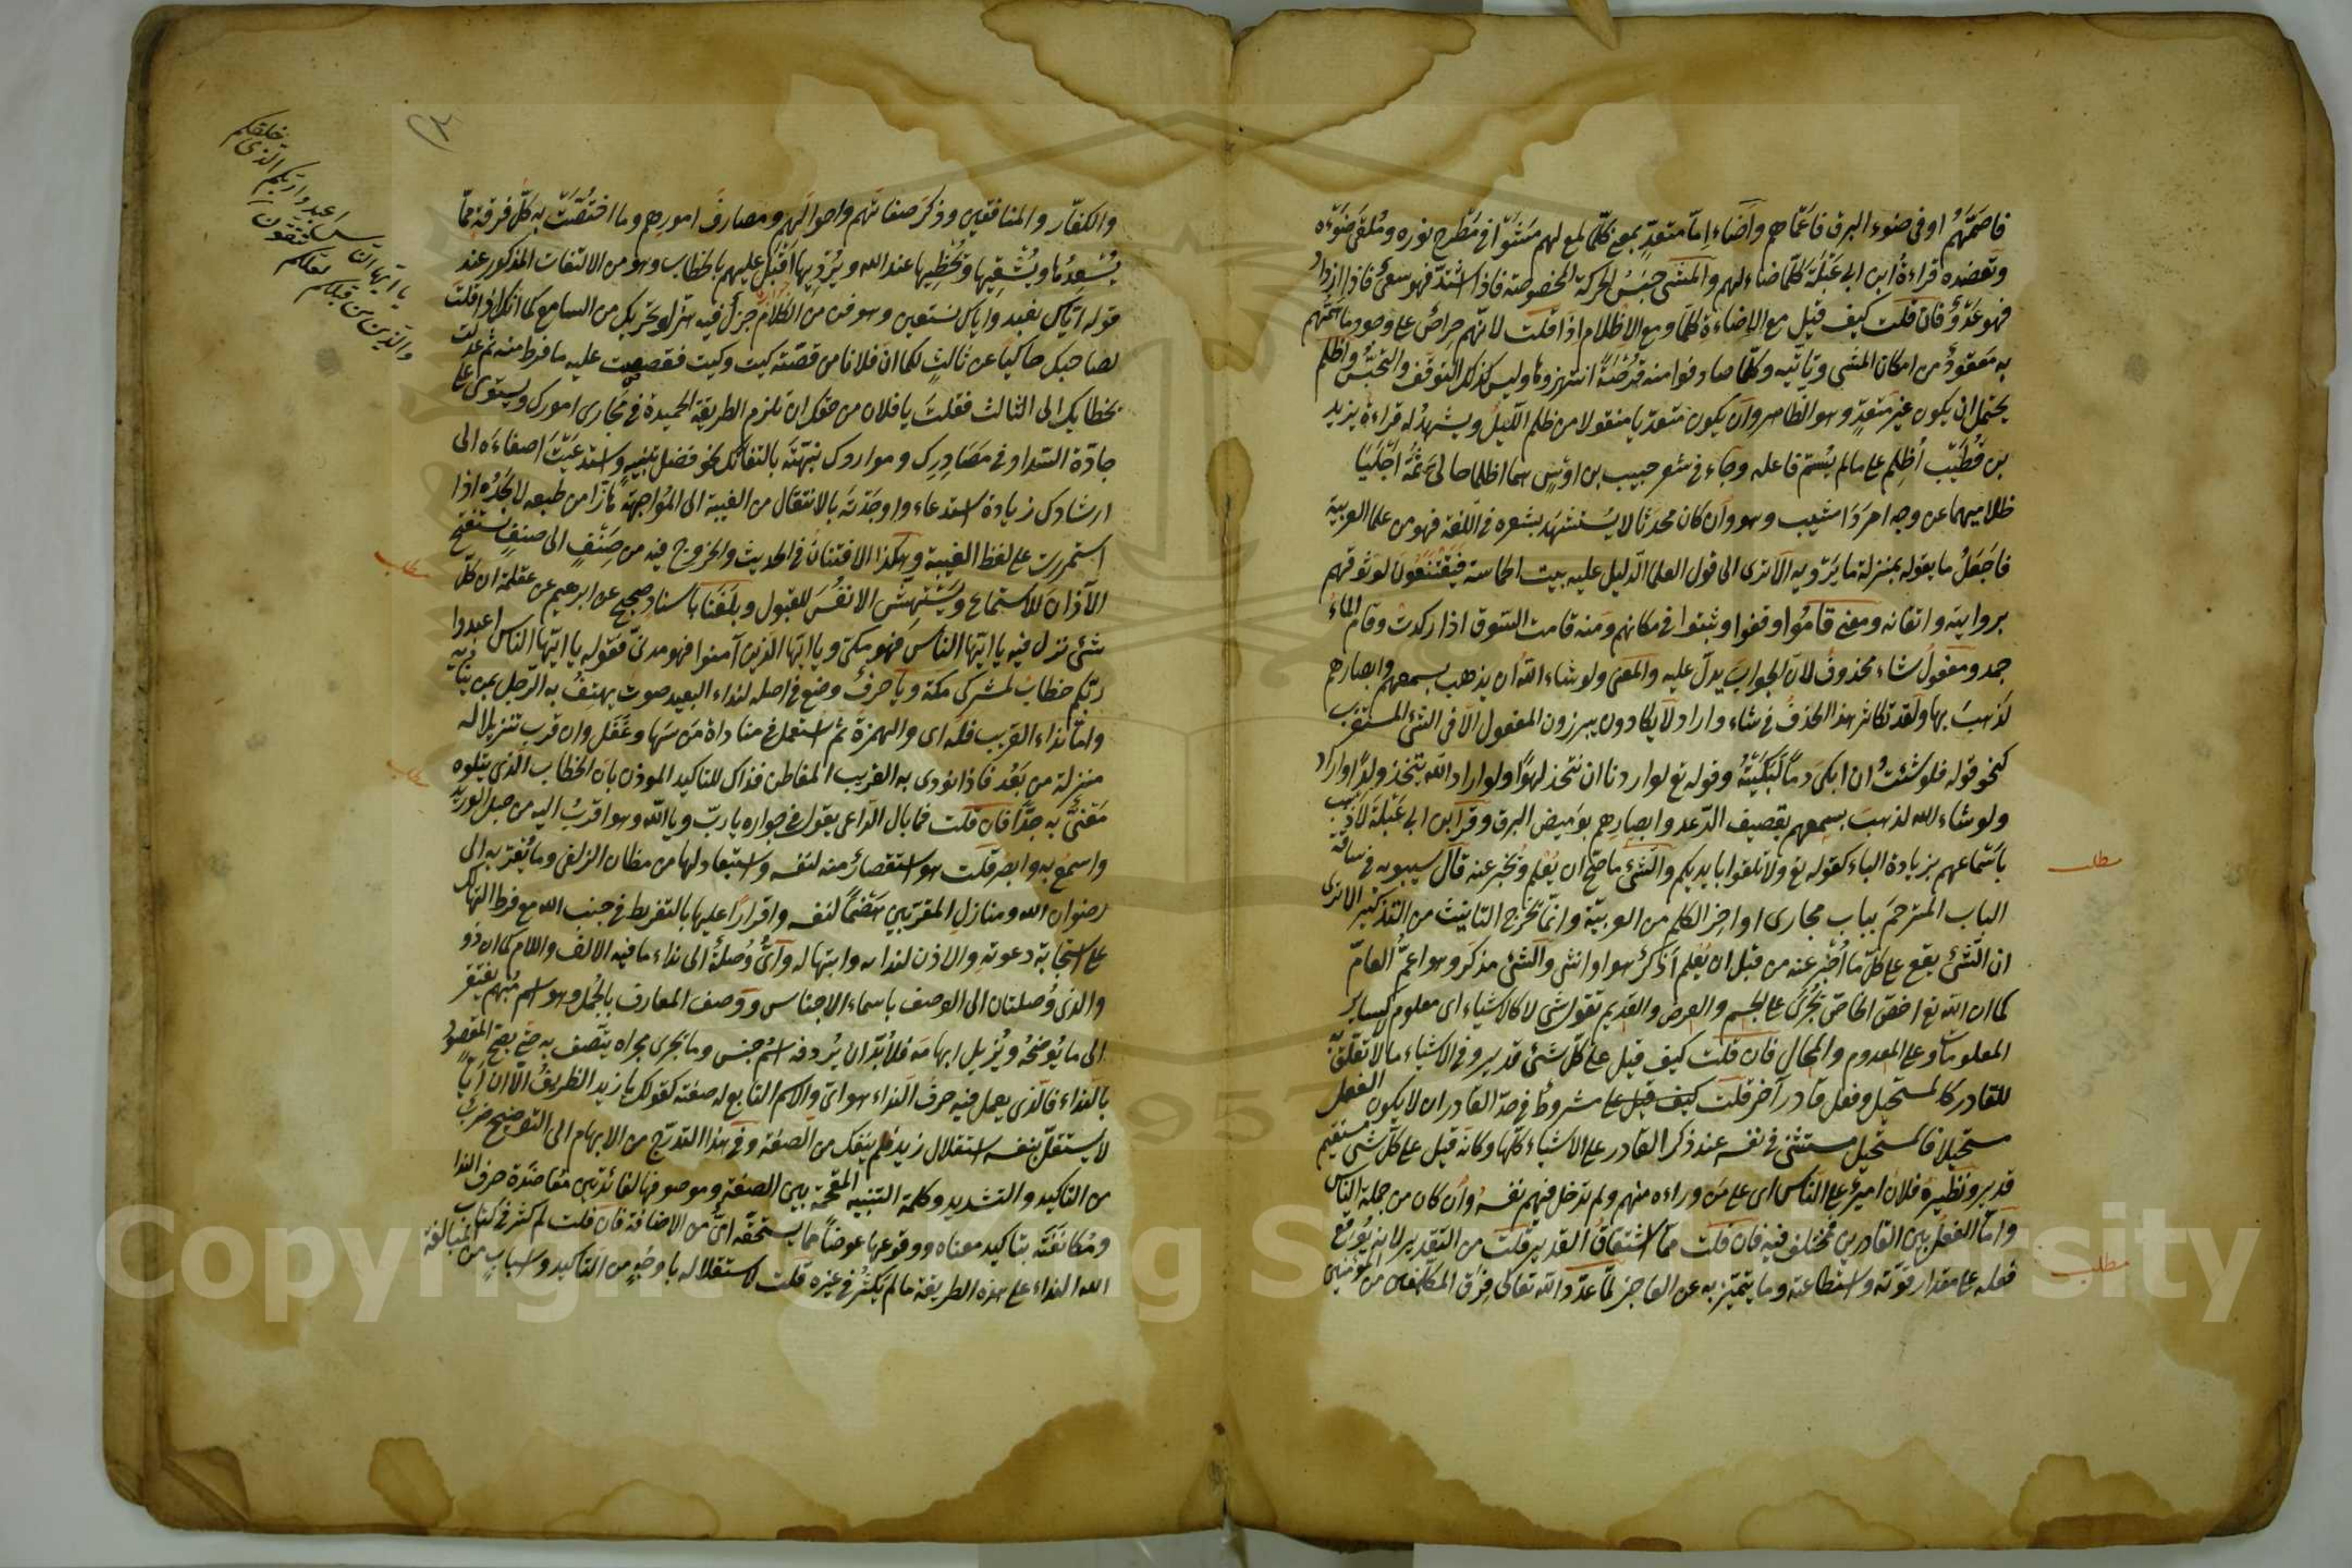 فاصمّهم او فى ضوء البرق فاعماهم واضاء امّا متعدّ بمعنى كلما لمع لهم مشوا فى مطرح نوره وملقى ضوئه
وتعضده قراءة ابن ابى عبلة كلما ضاء لهم والمشى جنس الحركة المخصوصة فاذا اشتدّ فهو سعى فاذا ازداد
فهو عدو فان قلت كيف قيل مع الاضاءة كلما ومع الاظلام اذا قلت لانهم حراص على وجود ما همّهم
به معقود من امكان المشى وتأتيه وكلما صادفوا منه فرصة انتهزوها وليس كذلك التوقف والتحبس واظلم
يحتمل ان يكون غير متعد وهو الظاهر وان يكون متعديا منقولا من ظلم الليل ويشهد له قراءة يزيد
بن قطيب أُظلم على ما لم يسم فاعله وجاء فى شعر حبيب بن اوس هما اظلما حالى ثمة اجليا
ظلاميهما عن وجه امرد اشيب وهو وان كان محدثا لا يستشهد بشعره فى اللغة فهو من علما العربية
فاجعل ما يقوله بمنزلة ما يرويه الا ترى الى قول العلما الدليل عليه بيت الحماسة فيقتنعون لوثوقهم
بروايته واتقانه ومعنى قاموا وقفوا وثبتوا فى مكانهم ومنه قامت السوق اذا ركدت وقام الماء
جمد ومفعول شاء محذوف لان الجواب يدل عليه والمعنى ولو شاء الله ان يذهب بسمعهم وابصارهم
لذهب بها ولقد تكاثر هذا الحذف فى شاء واراد لا يكادون يبرزون المفعول الا فى الشئ المستغرب
كنحو قوله فلو شئت ان ابكى دما لبكيته وقوله تع لو اردنا ان نتخذ لهوا ولو اراد الله يتخذ ولدا واراد
ولو شاء الله لذهب بسمعهم بقصيف الرعد وابصارهم بوميض البرق وقرا ابن ابى عبلة لاذهب
باسماعهم بزيادة الباء كقوله تع ولا تلقوا بايديكم والشئ ما صح ان يعلم ويخبر عنه قال سيبويه فى ساقة
الباب المترجم بباب مجارى اواخر الكلم من العربية وانما يخرج التانيث من التذكير الا ترى
ان الشئ يقع على كل ما اخبر عنه من قبل ان يعلم اذكر هو او انثى والشئ مذكر وهو اعم العام
كما ان الله تع اخص الخاص يجرى على الجسم والعرض والقديم تقول شئ لا كالاشياء اى معلوم لا كساير
المعلومات وعلى المعدوم والمحال فان قلت كيف قيل على كل شئ قدير وفى الاشياء ما لا تعلق به
للقادر كالمستحيل وفعل قادر آخر قلت كيف قيل على مشروط فى حد القادر ان لا يكون الفعل
مستحيلا فالمستحيل مستثنى فى نفسه عند ذكر القادر على الاشياء كلها وكانه قيل على كل شئ مستقيم
قدير ونظيره فلان امير على الناس اى على من وراءه منهم ولم يدخل فيهم نفسه وان كان من جملة الناس
واما الفعل بين القادرين فمختلف فيه فان قلت مما اشتقاق القدير قلت من التقدير لانه يوقع
فعله على مقدار قوته واستطاعته وما يتميز به عن العاجز لما عدد الله تعالى فرق المكلفين من المؤمنين
مطلب
مطلب
والكفّار والمنافقين وذكر صفاتهم واحوالهم ومصارف امورهم وما اختصّت به كلّ فرقة مما
يسعدها ويشقيها ويحظيها عند الله ويرديها اقبل عليهم بالخطاب وهو من الالتفات المذكور عند
قوله اياك نعبد واياك نستعين وهو فن من الكلام جزل فيه هز وتحريك من السامع كما انك اذا قلت
لصاحبك حاكيا عن ثالث لكما ان فلانا من قصّته كيت وكيت فقصصت عليه ما فرط منه ثم عدلت
بخطابك الى الثالث فقلت يا فلان من حقك ان تلزم الطريقة الحميدة فى مجارى امورك وتستوى على
جادّة السداد فى مصادرك ومواردك نبّهته بالتفاتك نحوه فضل تنبيه واستدعيت اصغاءه الى
ارشادك زيادة استدعاء واوجدته بالانتقال من الغيبة الى المواجهة هازّا من طبعه لا يجده اذا
استمررت على لفظ الغيبة وهكذا الافتنان فى الحديث والخروج فيه من صنف الى صنف يستفتح
الآذان للاستماع ويستهش الانفس للقبول وبلغنا باسناد صحيح عن ابرهيم عن علقمة ان كل
شئ نزل فيه يا ايها الناس فهو مكى ويا ايها الذين آمنوا فهو مدنى فقوله يا ايها الناس اعبدوا
ربكم خطاب لمشركى مكة ويا حرف وضع فى اصله لنداء البعيد صوت يهتف به الرجل بمن يناديه
واما نداء القريب فله اى والهمزة ثم استعمل فى مناداة من سها وغفل وان قرب تنزيلا له
منزلة من بعد فاذا نودى به القريب المفاطن فذاك للتاكيد الموذن بان الخطاب الذى يتلوه
معنىّ به جدّا فان قلت فما بال الداعى يقول فى جواره يا رب ويا الله وهو اقرب اليه من حبل الوريد
واسمع به وابصر قلت هو استقصار منه لنفسه واستبعاد لها من مظان الزلفى وما يقربه الى
رضوان الله ومنازل المقربين هضما لنفسه واقرارا عليها بالتفريط فى جنب الله مع فرط التهالك
على استجابة دعوته والاذن لندائه وابتهاله واىّ وصلة الى نداء ما فيه الالف واللام كما ان ذو
والذى وصلتان الى الوصف باسماء الاجناس ووصف المعارف بالجمل وهو اسم مبهم يفتقر
الى ما يوضحه ويزيل ابهامه فلا بد ان يردفه اسم جنس وما يجرى مجراه يتصف به حتى يصح المقصود
بالنداء فالذى يعمل فيه حرف النداء هو اى والاسم التابع له صفته كقولك يا زيد الظريف الا ان ايّا
لا يستقل بنفسه استقلال زيد فلم ينفك من الصفة وفى هذا التدرج من الابهام الى التوضيح ضرب
من التاكيد والتشديد وكلمة التنبيه المقحمة بين الصفة وموصوفها لفائدتين معاضدة حرف الندا
ومكانفته بتاكيد معناه ووقوعها عوضا مما يستحقه اى من الاضافة فان قلت لم كثر فى كتاب
الله النداء على هذه الطريقة ما لم يكثر فى غيره قلت لاستقلاله باوجه من التاكيد واسباب من المبالغة
يا ايها الناس اعبدوا ربكم الذى خلقكم
والذين من قبلكم لعلكم تتقون
مطلب
Copyright © King Saud University
1957